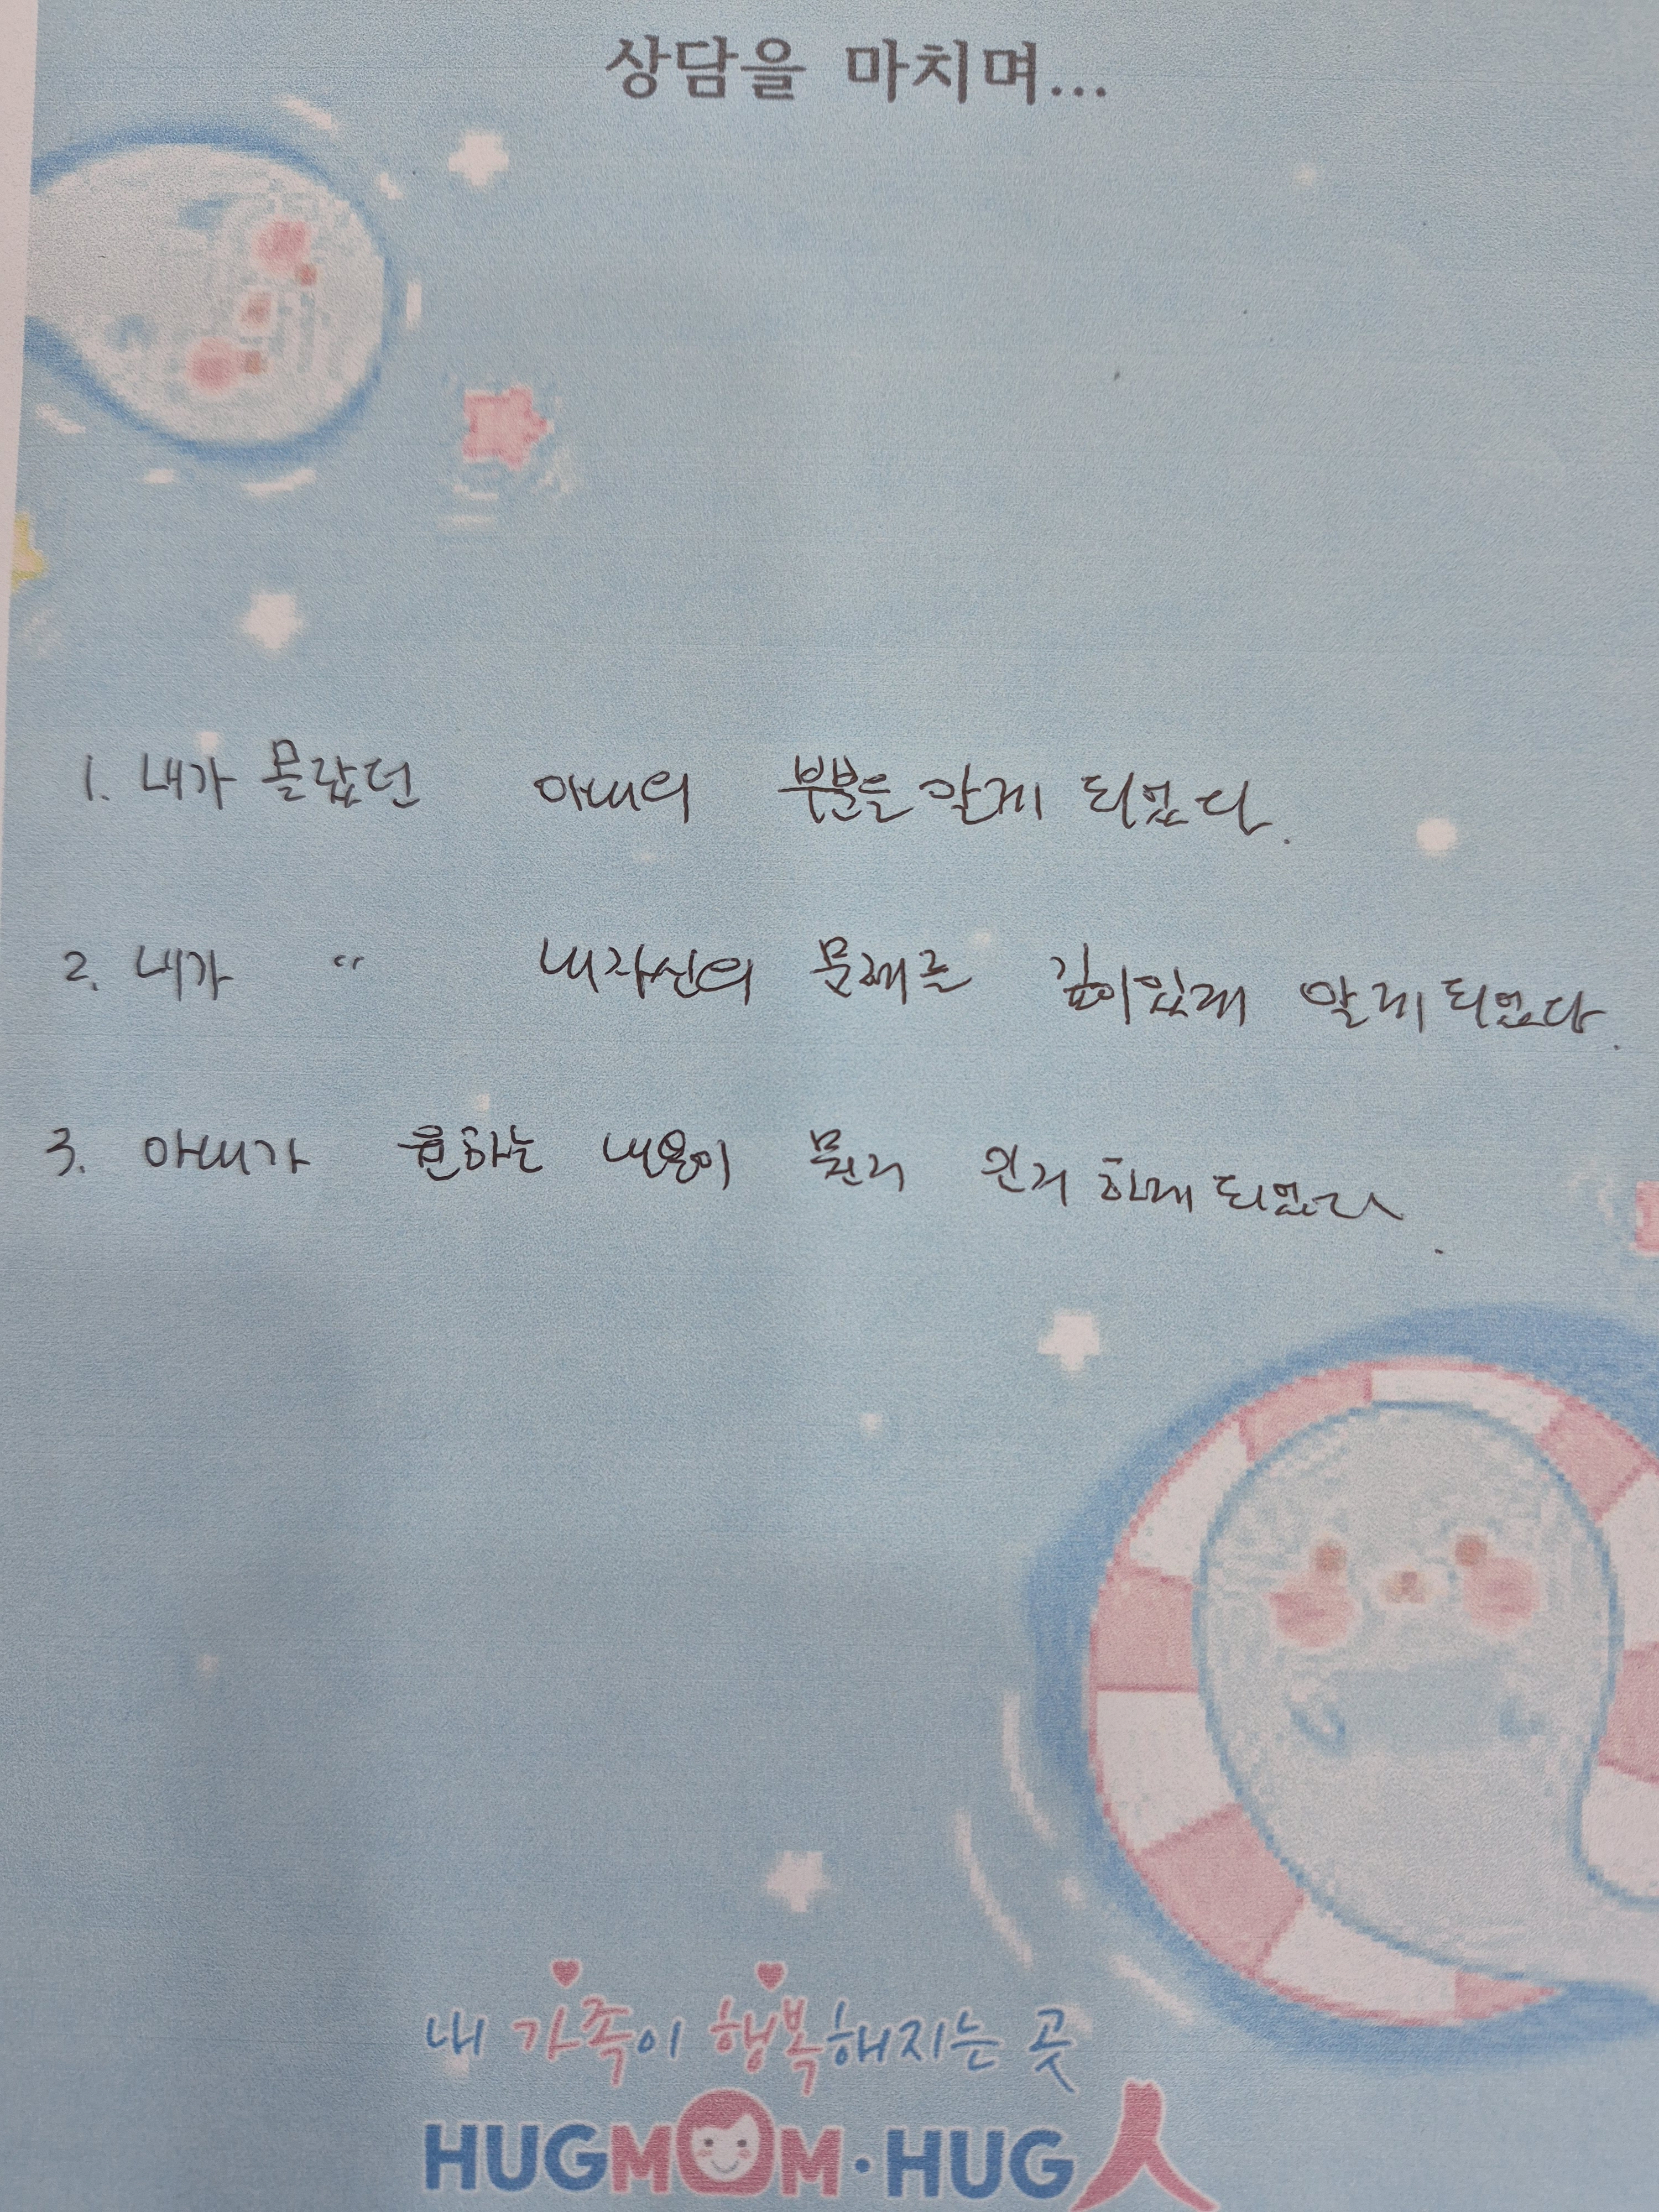 상담을 마치며...
1. 내가 몰랐던 아내의 부분을 알게 되었다.
2. 내가 〃 내자신의 문제를 깊이있게 알게 되었다.
3. 아내가 원하는 내용이 뭔지 인지 하게 되었다.
내 가족이 행복해지는 곳
HUGMOM·HUG人